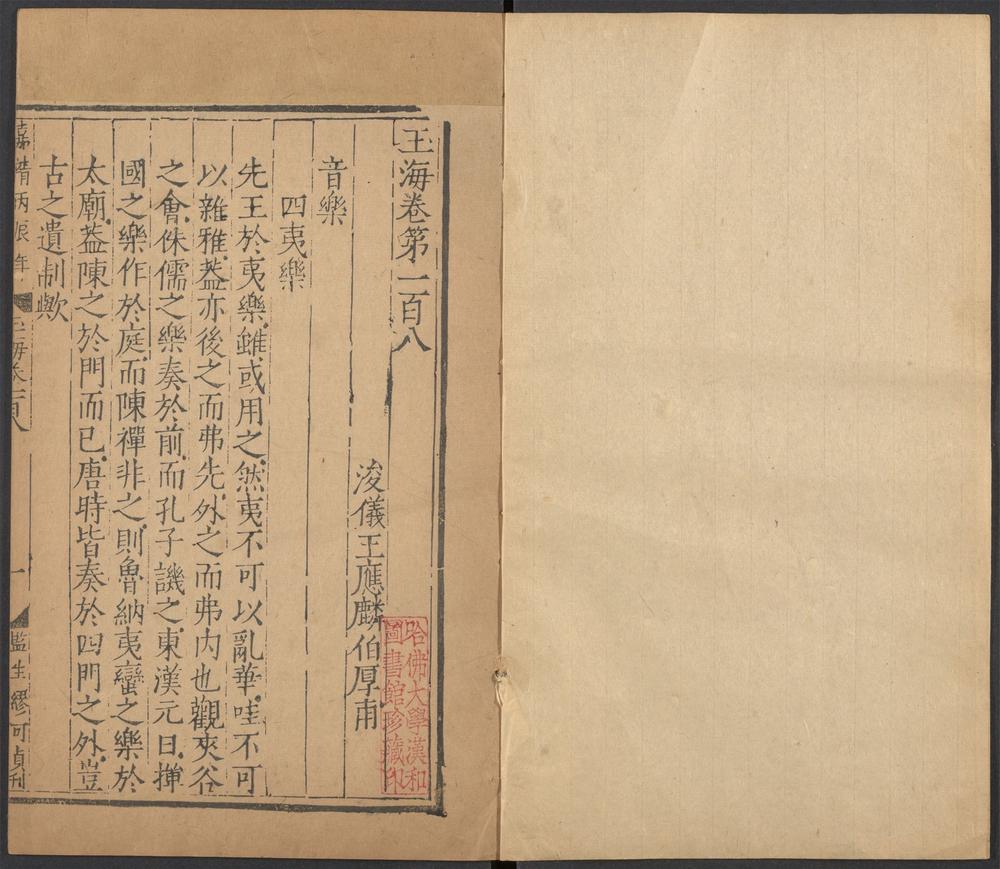 玉海卷第一百八
浚儀王應麟伯厚甫
音樂
四夷樂
先王於夷樂雖或用之然夷不可以亂華哇不可
以雜雅蓋亦後之而弗先外之而弗内也觀夾谷
之會侏儒之樂奏於前而孔子譏之東漢元日撣
國之樂作於庭而陳禪非之則魯納夷蠻之樂於
太廟蓋陳之於門而已唐時皆奏於四門之外豈
古之遺制歟
嘉靖丙辰年
玉海卷一百八
一
監生繆可貞刊
哈佛大學漢和
圖書館珍藏印